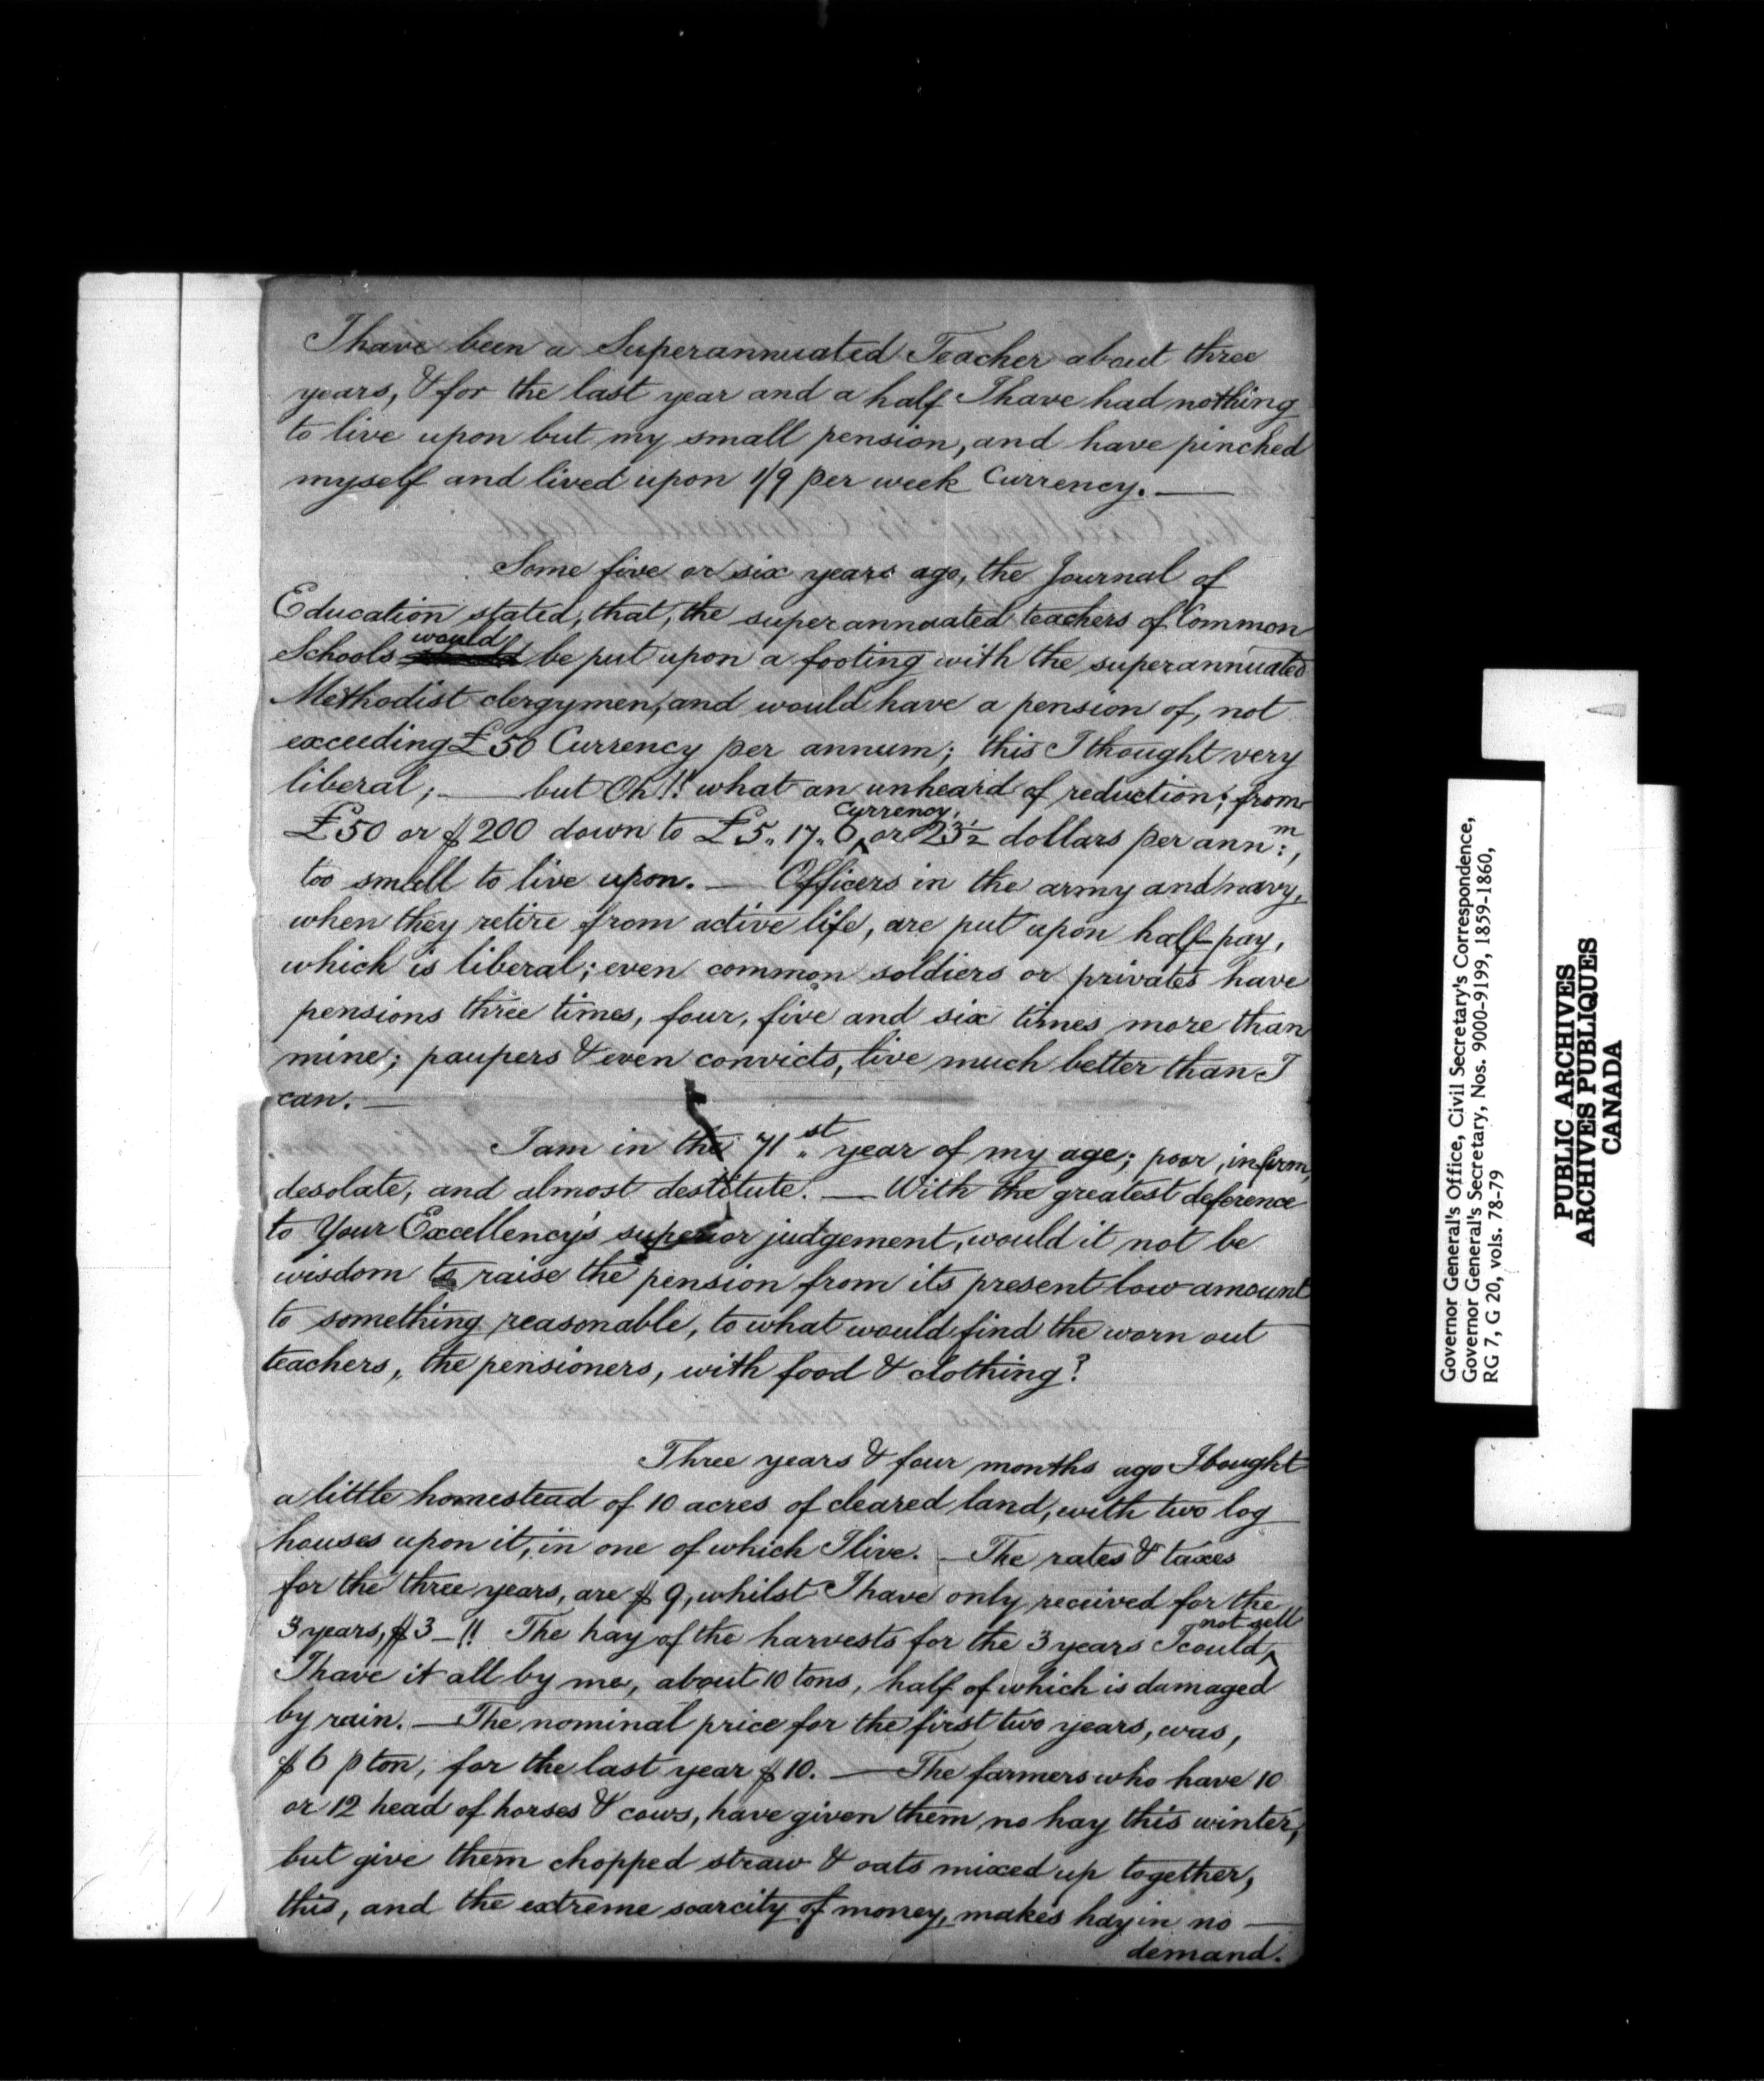 I have been a Superannuated Teacher about three
years, & for the last year and a half I have had nothing
to live upon but my small pension, and have pinched
myself and lived upon 1/9 per week Currency. —
Some five or six years ago, the Journal of
Education stated, that, the superannuated teachers of Common
would
Schools be put upon a footing with the superannuated
Methodist clergymen, and would have a pension of, not
exceeding £50 Currency per annum; this I thought very
liberal; — but Oh!! what an unheard of reduction; from
Currency,
£50 or $200 down to £5,, 17,, 6 ^ or 23½ dollars per ann:m,
too small to live upon. — Officers in the army and navy,
when they retire from active life, are put upon half-pay,
which is liberal; even common soldiers or privates have
pensions three times, four, five and six times more than
mine; paupers & even convicts, live much better than I
can. —
I am in the 71st year of my age; poor, infirm,
desolate, and almost destitute. — With the greatest deference
to Your Excellency's superior judgement, would it not be
wisdom to raise the pension from its present low amount
to something reasonable, to what would find the worn out
teachers, the pensioners, with food & clothing?
Three years & four months ago I bought
a little homestead of 10 acres of cleared land, with two log
houses upon it, in one of which I live. — The rates & taxes
for the three years, are $9, whilst I have only received for the
not sell
3 years, $3 — !! The hay of the harvests for the 3 years I could ^
I have it all by me, about 10 tons, half of which is damaged
by rain. — The nominal price for the first two years, was,
$6 p ton, for the last year $10. — The farmers who have 10
or 12 head of horses & cows, have given them no hay this winter,
but give them chopped straw & oats mixed up together,
this, and the extreme scarcity of money, makes hay in no —
demand.
Governor General's Office, Civil Secretary's Correspondence,
Governor General's Secretary, Nos. 9000-9199, 1859-1860,
RG 7, G 20, vols. 78-79
PUBLIC ARCHIVES
ARCHIVES PUBLIQUES
CANADA